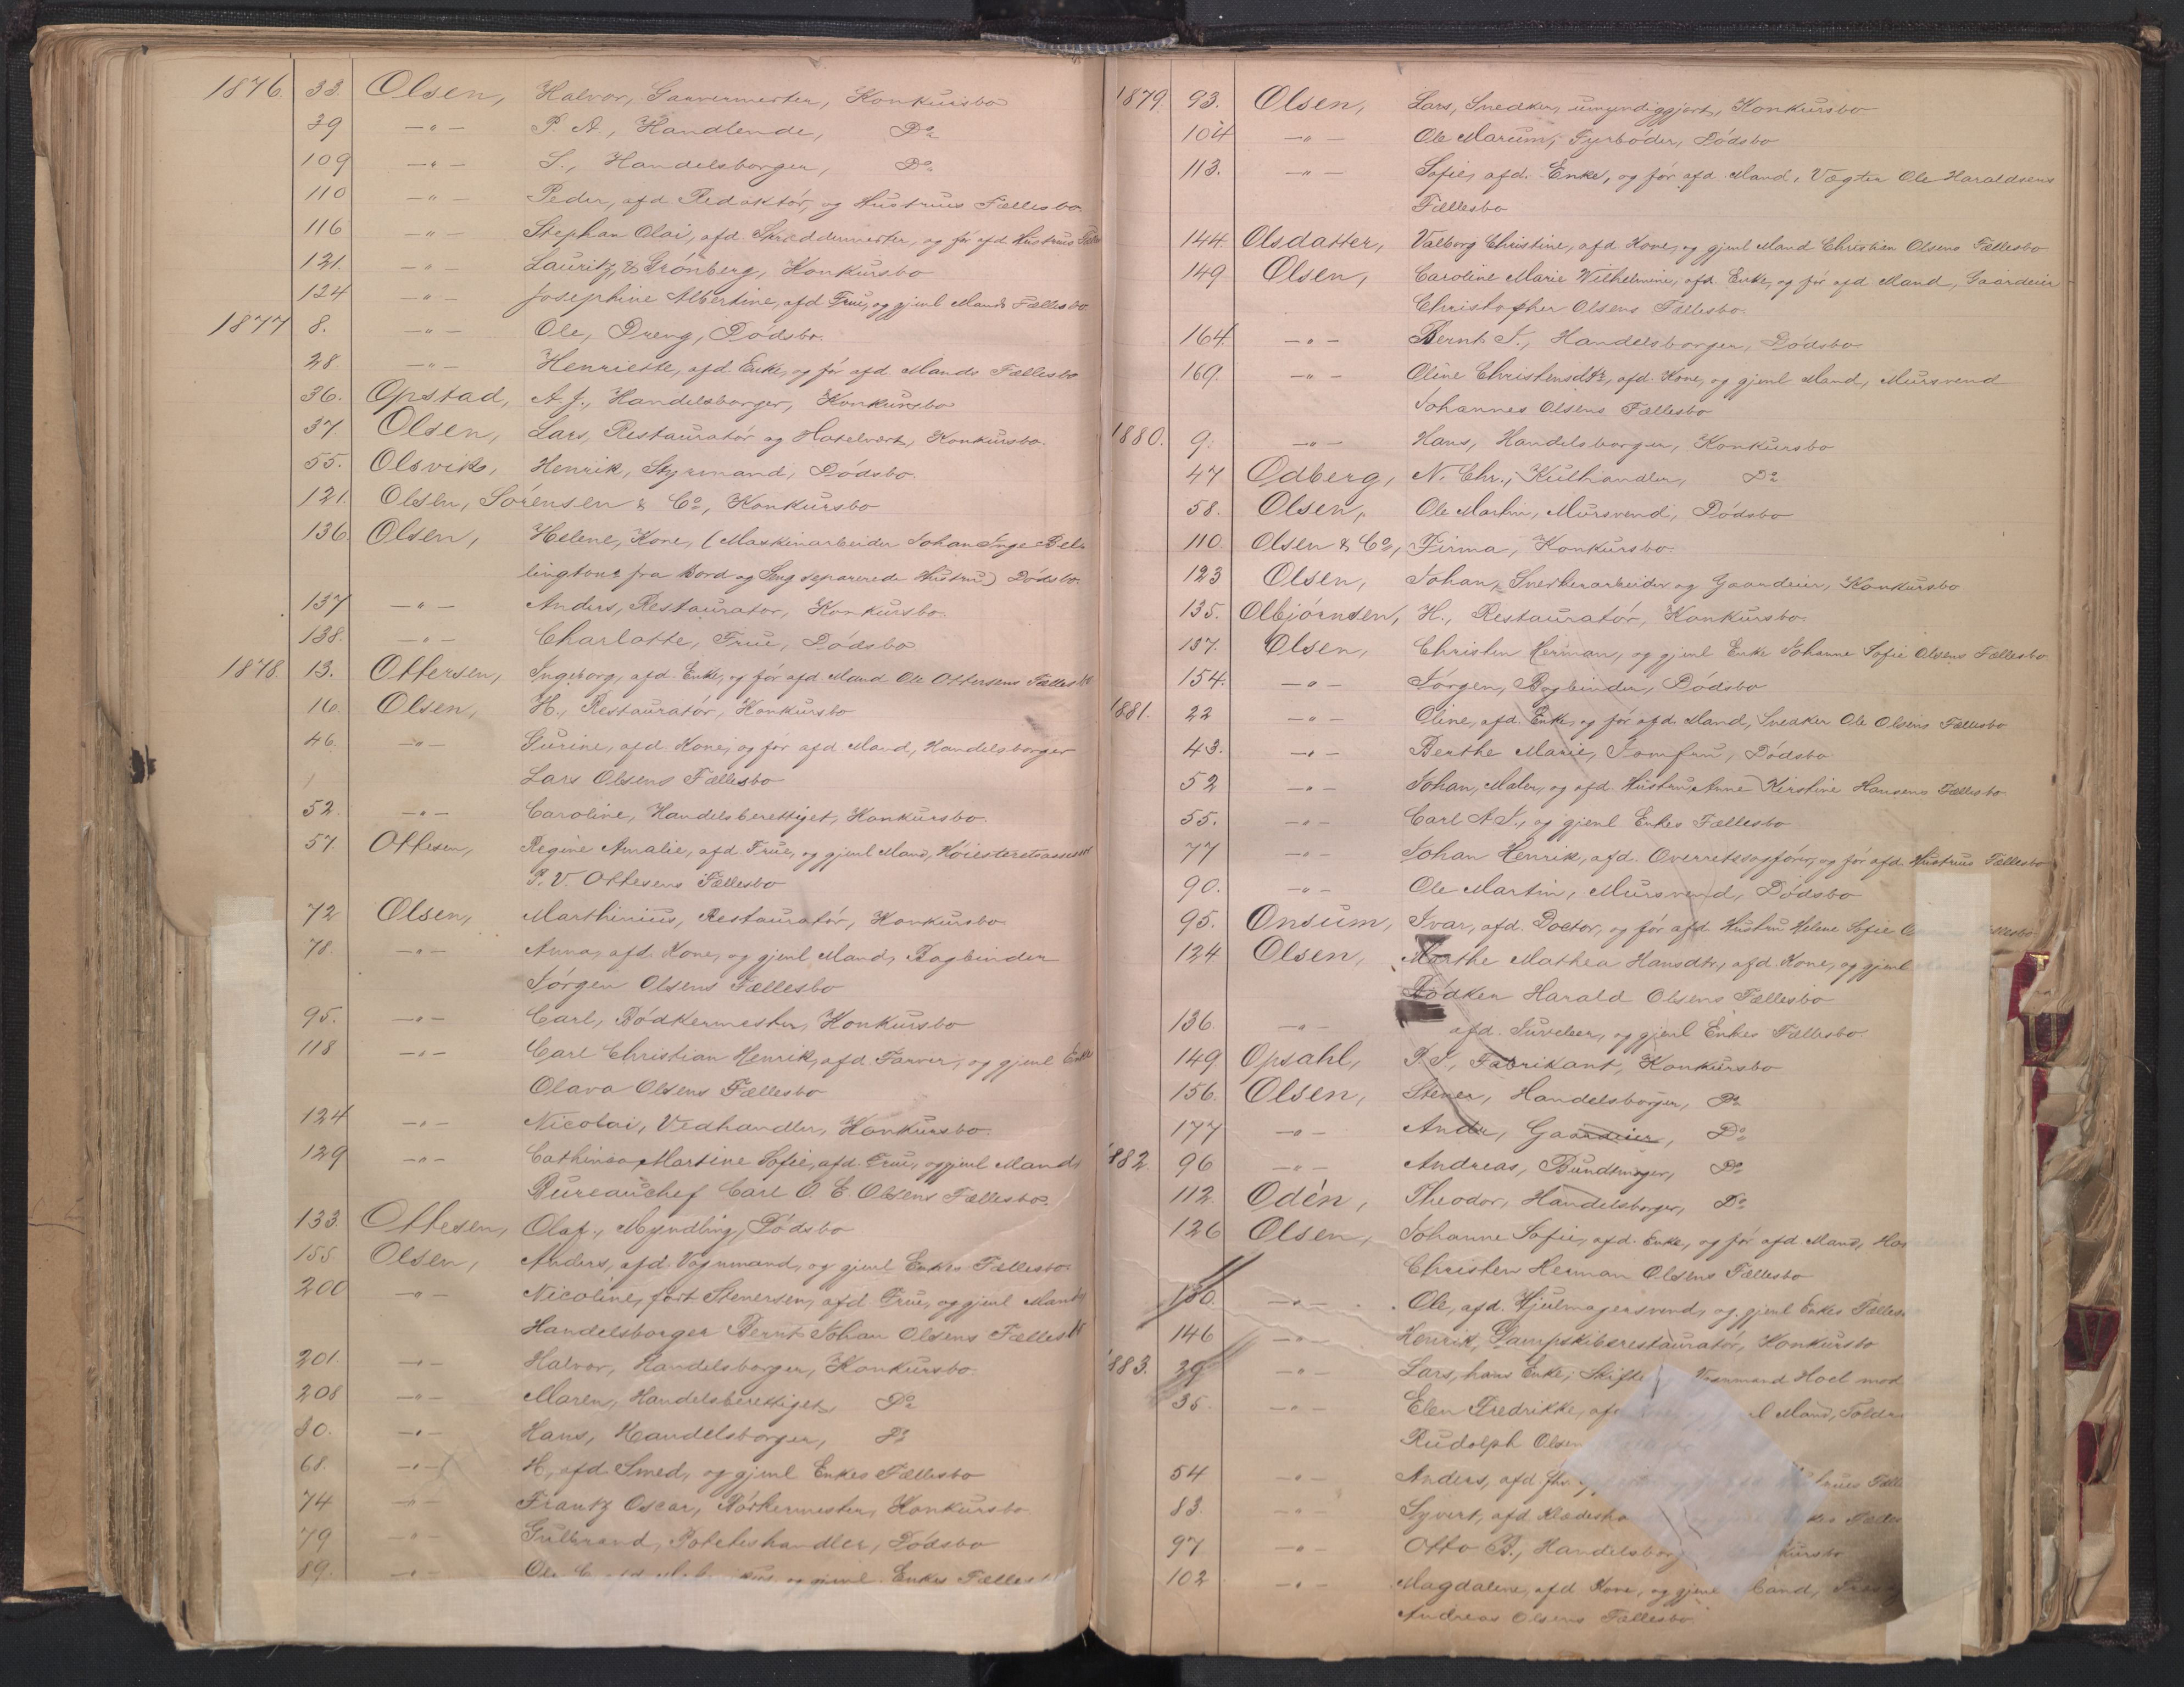 1876. 33. Olsen, Halvor, Garvermester, Konkursbo
39 —"— P. A., Handlende, Do
109 —"— S., Handelsborger, Do
110 —"— Peder, afd Redaktör, og Hustrues Fællesbo
116 —"— Stephan Olai, afd. Skræddermester, og før afd Hustrues
121. —"— Lauritz & Grönberg, Konkursbo
124 —"— Josephine Albertine, afd Frue, og gjenl Mands Fællesbo
1877 8. —"— Ole, Dreng, Dödsbo.
28 —"— Henriette, afd. Enke, og før afd Mands Fællesbo
36. Opstad, A. J., Handelsborger, Konkursbo
37 Olsen, Lars, Restauratör og Hotelvert, Konkursbo.
55. Olsvik, Henrik, Styrmand, Dödsbo.
121. Olsen, Sörensen & Co, Konkursbo
136 Olsen, Helene, Kone, (Maskinarbeider Johan Inge Bel-
lingtons fra Bord og Seng separerede Hustru) Dödsbo.
137 —"— Anders, Restauratör, Konkursbo.
138. —"— Charlotte, Frue, Dödsbo
1878. 13. Ottersen, Ingeborg, afd. Enke, og før afd Mand Ole Ottersens Fællesbo
16 Olsen, H., Restauratör, Konkursbo
46. —"— Gurine, afd. Kone, og før afd. Mand, Handelsborger
Lars Olsens Fællesbo
52. —"— Caroline, Handelsberettiget, Konkursbo.
57. Ottesen, Regine Amalie, afd Frue, og gjenl Mand, Höiesteretsassessor
P. V. Ottesens Fællesbo
72 Olsen, Marthinius, Restauratör, Konkursbo
78. —"— Anna, afd. Kone, og gjenl Mand, Bogbinder
Jörgen Olsens Fællesbo
95. —"— Carl, Bödkermester, Konkursbo
118 —"— Carl Christian Henrik, afd. Farver, og gjenl Enke
Olava Olsens Fællesbo
124 —"— Nicolai, Vedhandler, Konkursbo.
129 —"— Cathinca Martine Sofie, afd. Frue, og gjenl Mand,
Bureauchef Carl O. E. Olsens Fællesbo.
133. Ottesen, Olaf, Myndling, Dödsbo
155 Olsen, Anders, afd. Vognmand, og gjenl Enkes Fællesbo.
200 —"— Nicoline, født Stenersen, afd Frue, og gjenl Mand,
Handelsborger Bernt Johan Olsens Fællesbo
201. —"— Halvor, Handelsborger, Konkursbo.
208 —"— Maren, Handelsberettiget, Do
30. —"— Hans, Handelsborger, Do
68. —"— H., afd Smed, og gjenl Enkes Fællesbo
74 —"— Frantz Oscar, Kørkermester, Konkursbo.
79 —"— Gulbrand, Poteteshandler, Dödsbo
89. —"— Ole og gjenl. Enkes Fællesbo
1879. 93. Olsen, Lars, Snedker, umyndiggjort, Konkursbo
104 —"— Ole Marum, Fyrböder, Dödsbo
113. —"— Sofie, afd. Enke, og før afd. Mand, Vægter Ole Haraldsens
Fællesbo
144. Olsdatter, Valborg Christine, afd Kone, og gjenl Mand Christian Olsens Fællesbo
149 Olsen, Caroline Marie Wilhelmine, afd. Enke, og før afd Mand, Gaardeier
Christopher Olsens Fællesbo.
164. —"— Bernt J., Handelsborger, Dödsbo
169. —"— Oline Christensdtr, afd. Kone, og gjenl Mand, Mursvend
Johannes Olsens Fællesbo
1880. 9. —"— Hans, Handelsborger, Konkursbo
47 Odberg, N. Chr., Kulhandler, Do
58. Olsen, Ole Martin, Mursvend, Dödsbo
110 Olsen & Co, Firma, Konkursbo.
123 Olsen, Johan, Snerkerarbeider og Gaardeier, Konkursbo.
135. Olbjörnsen, H., Restauratör, Konkursbo.
137. Olsen, Christen Herman, og gjenl Enke Johanne Sofie Olsens Fællesbo
154. —"— Jörgen, Bogbinder, Dödsbo
1881. 22 —"— Oline, afd. Enke, og før afd. Mand, Snedker Ole Olsens Fællesbo
43. —"— Berthe Marie, Jomfru, Dödsbo
52 —"— Johan, Maler, og afd. Hustru Anne Kirstine Hansens Fællesbo
55. —"— Carl A. J., og gjenl Enkes Fællesbo
77 —"— Johan Henrik, afd. Overretssagförer, og før afd. Hustrues Fællesbo
90. —"— Ole Martin, Mursvend, Dödsbo
95. Onsum, Ivar, afd. Doctor, og før afd Hustru Helene Sofie
124 Olsen, Marthe Mathea Hansdtr, afd. Kone, og gjenl
Bödker Harald Olsens Fællesbo
136. —"— afd. Juveleer, og gjenl Enkes Fællesbo.
149 Opsahl, P. J., Fabrikant, Konkursbo
156. Olsen, Stener, Handelsborger, Do
177 —"— Andr, Gaardeier, Do
1882. 96 —"— Andreas, Bundtmager, Do
112 Odén, Theodor, Handelsborger, Do
126 Olsen, Johanne Sofie, afd. Enke, og før afd Mand,
Christen Herman Olsens Fællesbo
130. —"— Ole, afd. Hjulmagersvend, og gjenl Enkes Fælles
146 —"— Henrik, Dampskibsrestauratör, Konkursbo
1883. 29 —"— Lars, hans Enke, Skifte Vognmand Hoel mod
35. —"— Elen Fredrikke, afd l Mand, Told
Rudolph Olsen
54 —"— Anders, afd Hustrues Fælle
83. —"— Syvert, afd Klædesha Enkes Fælles
97 —"— Otto B., Handelsborg kursbo
102 —"— Magdalene, afd Kone, og gjenl Mand,
Andreas Olsens Fællesbo.